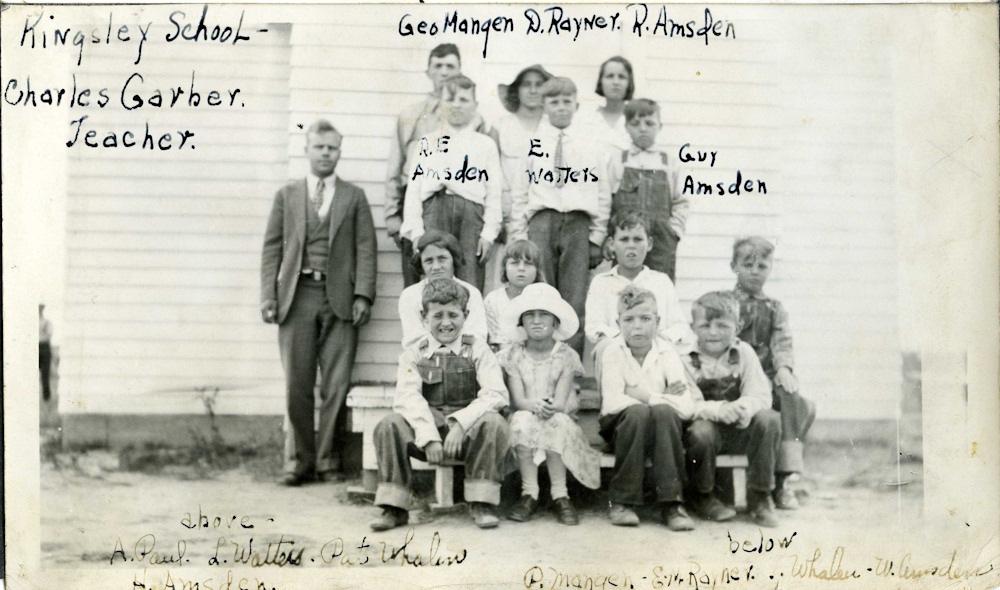 Kingsley School -
Geo Mangen D. Rayner. R. Amsden
Charles Garber.
Teacher.
R. E
Amsden
E.
Watters
Guy
Amsden
above -
A. Paul. L. Watters. Pat Whalen
H. Amsden.
below
P. Mangen - E.M. Rayner. Whalen - W. Amsden